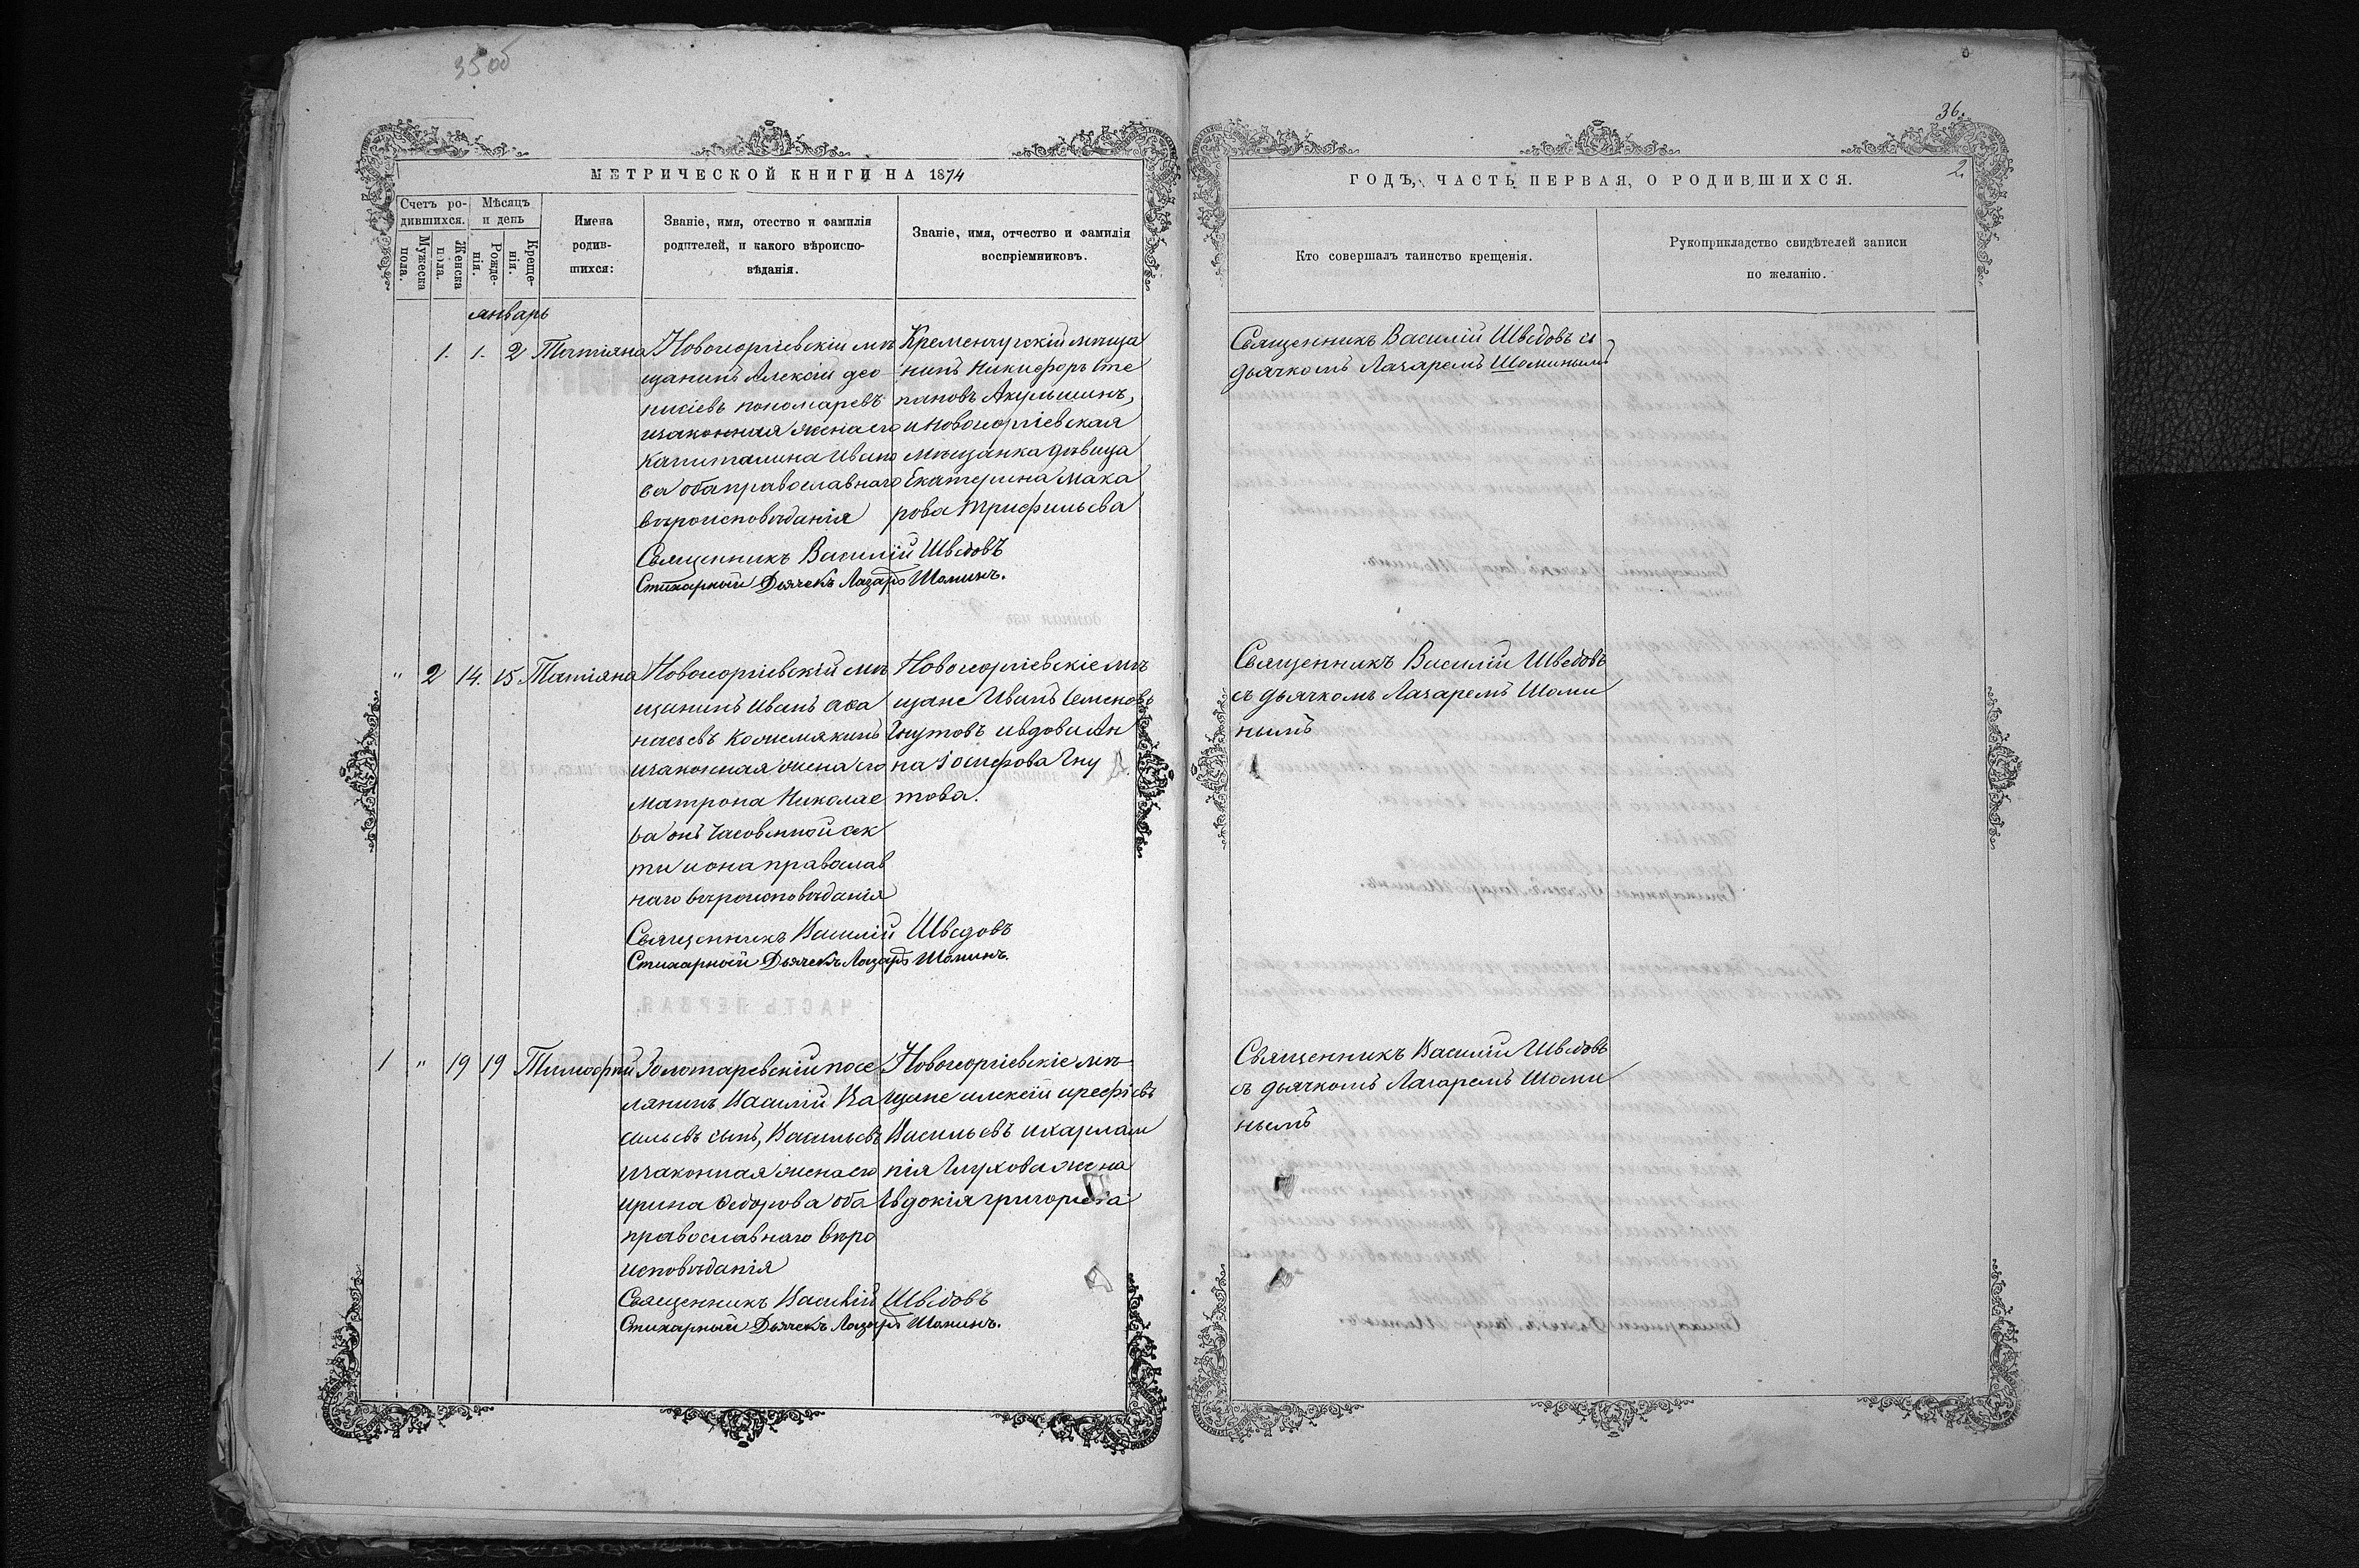 35об
МЕТРИЧЕСКОЙ КНИГИ НА 1874
Счетъ ро-
дившихся.
Мужеска
пола.
Женска
пола.
Мѣсяцъ
и день
Рожде-
нія.
Креще-
нія.
Имена
родив-
шихся:
Званіе, имя, отество и фамилія
родителей, и какого вѣроиспо-
вѣданія.
Званіе, имя, отчество и фамилія
воспріемниковъ.
январь
1. 1. 2 Татіяна
Новогеоргіевскій мѣ
щанинъ Алексій Део
нисіевъ пономаревъ
изаконная жена его
Капиталина Ивано
ва оба православнаго
вѣроисповѣданія
Кременчугскій мѣща
нинъ Никифоръ Сте
пановъ Акульшинъ,
и Новогеоргіевская
мѣщанка дѣвица
Екатерина Мака
рова Трифильева
Священникъ Василій Шведовъ
Стихарный Дьячекъ Лазарь Шоминъ.
" 2 14. 15. Татіяна
Новогеоргіевскій мѣ
щанинъ Иванъ Афа
насьевъ Кожемякинъ
изаконная жена его
Матрона Николае
ва онъ часовенной сек
ты и она православ
наго вѣроисповѣданія
Новогеоргіевскіе мѣ
щане Иванъ Семеновъ
Гнутовъ и вдова Ан
на Іосифова Гну
това.
Священникъ Василій Шведовъ
Стихарный Дьячекъ Лазарь Шоминъ.
1 " 19 19 Тимофѣй
Золотаревскій посе
лянинъ Василій Ва
сильевъ сынъ, Васильевъ
изаконная жена его
Ирина Федорова оба
православнаго вѣро
исповѣданія
Новогеоргіевскіе мѣ
щане Алексій Арефіевъ
Васильевъ и Харлам
пія Глухова жена
Евдокія Григорьева
Священникъ Василій Шведовъ
Стихарный Дьячекъ Лазарь Шоминъ.
36.
2
ГОДЪ, ЧАСТЬ ПЕРВАЯ, О РОДИВШИХСЯ.
Кто совершалъ таинство крещенія.
Рукоприкладство свидѣтелей записи
по желанію.
Священникъ Василій Шведовъ съ
дьячкомъ Лазаремъ Шоминымъ
Священникъ Василій Шведовъ
съ дьячкомъ Лазаремъ Шоми
нымъ
Священникъ Василій Шведовъ
съ дьячкомъ Лазаремъ Шоми
нымъ